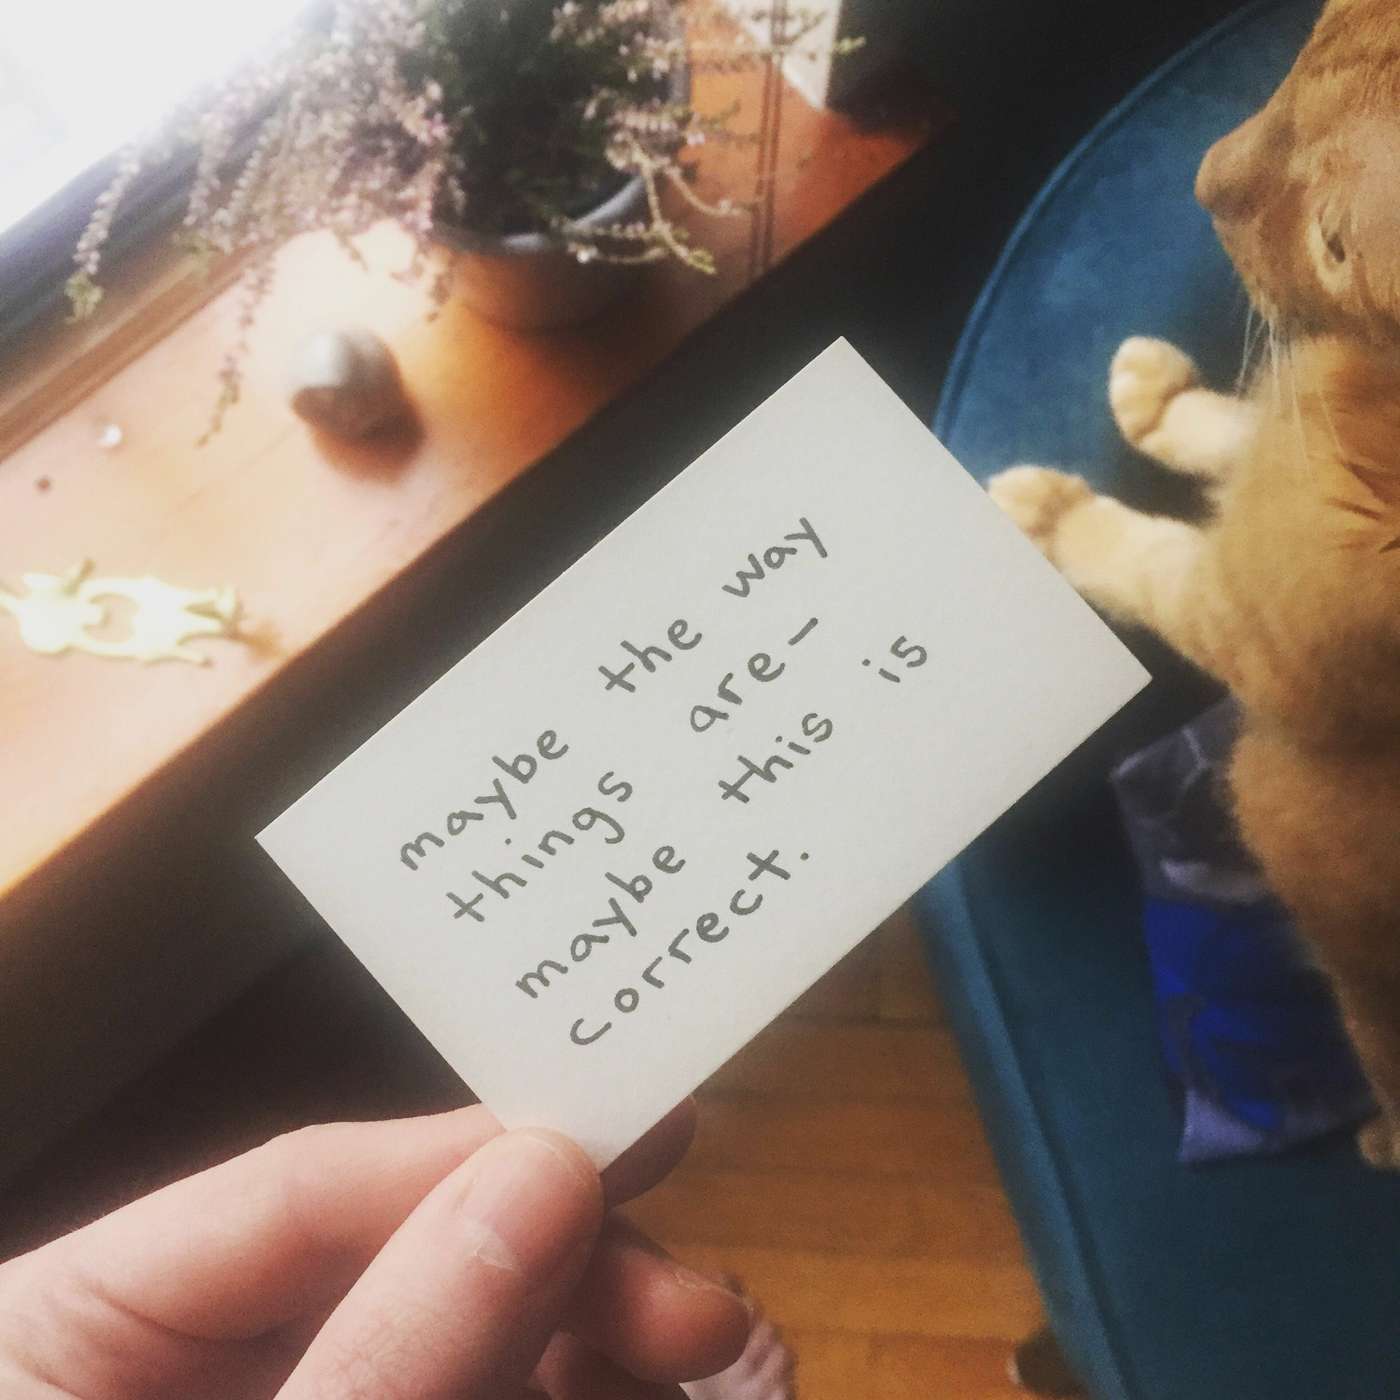 maybe the way
things are-
maybe this is
correct.